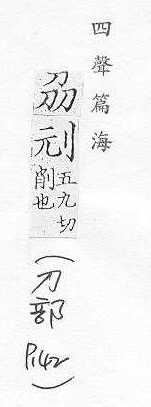 四聲篇海
刕
刓 五九切
削也
(刀部 P.142)